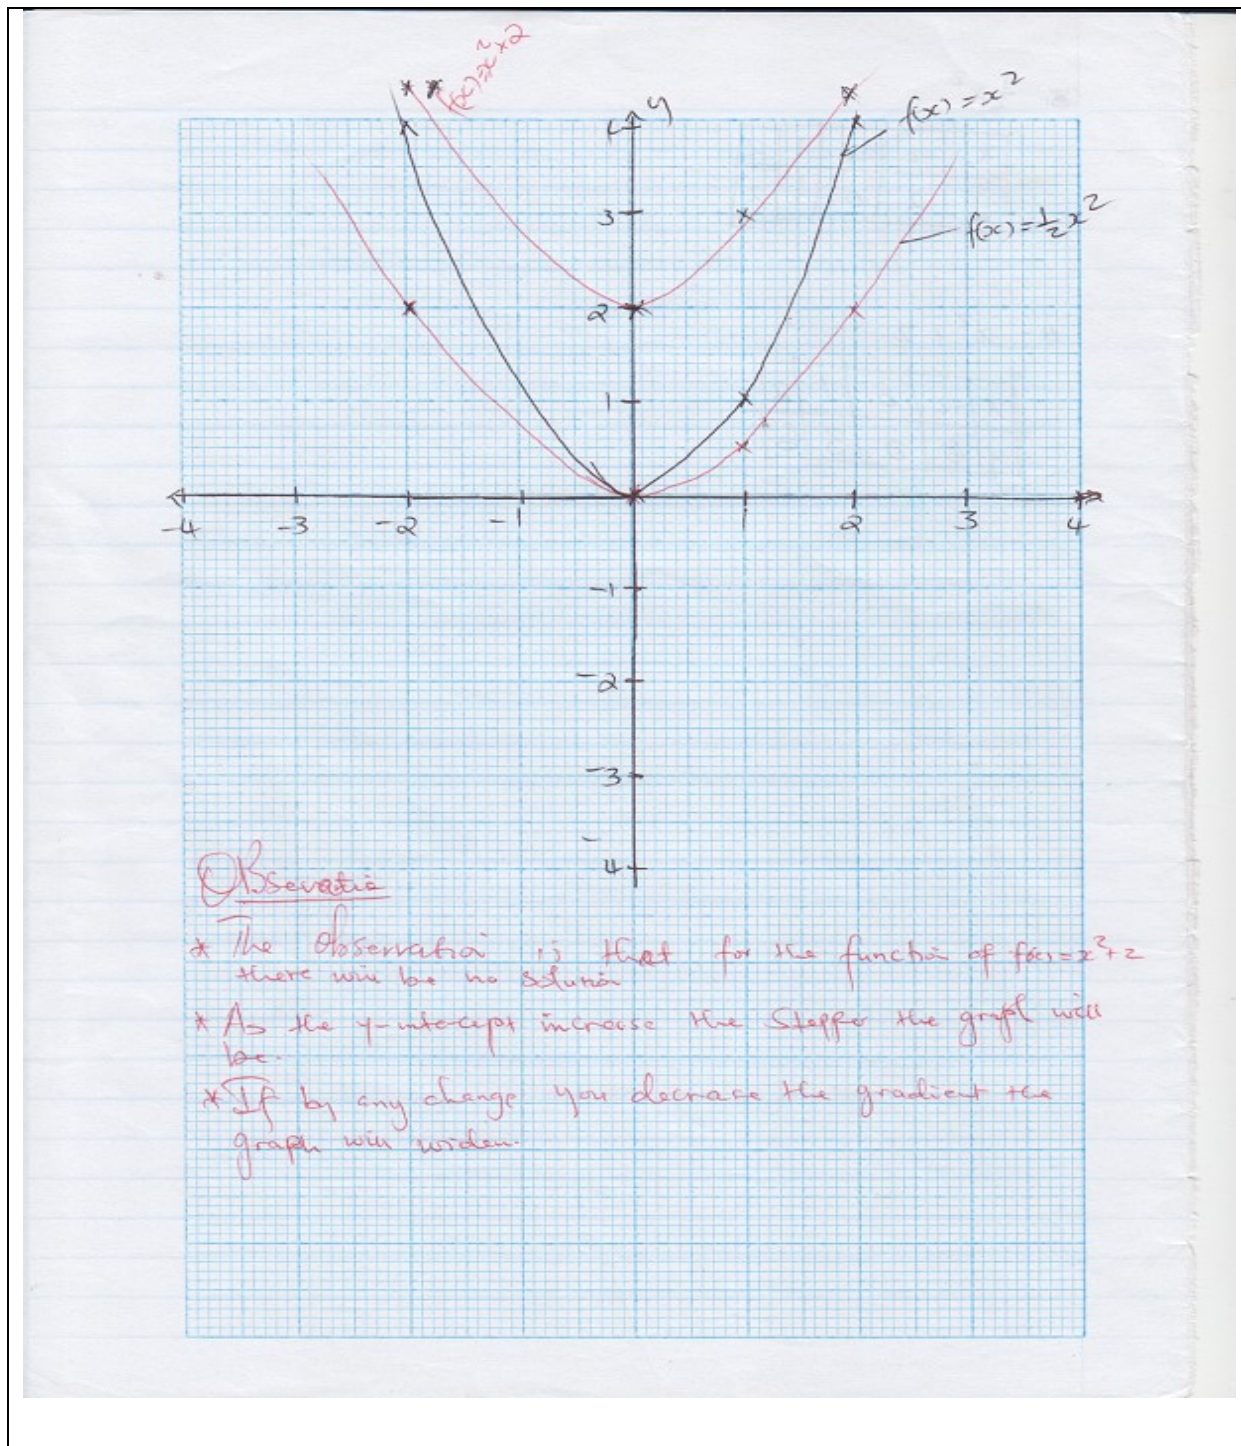 f(x)=x²×2
y
f(x)=x²
4
3
f(x)=½x²
2
1
-4 -3 -2 -1 2 3 4
-1
-2
-3
-4
OBsevatio
* The Observation is that for the function of f(x)=x²+2
there will be no solution
* As the y-intercept increase the Stepper the graph will
be.
* If by any change you decrease the gradient the
graph will widen.